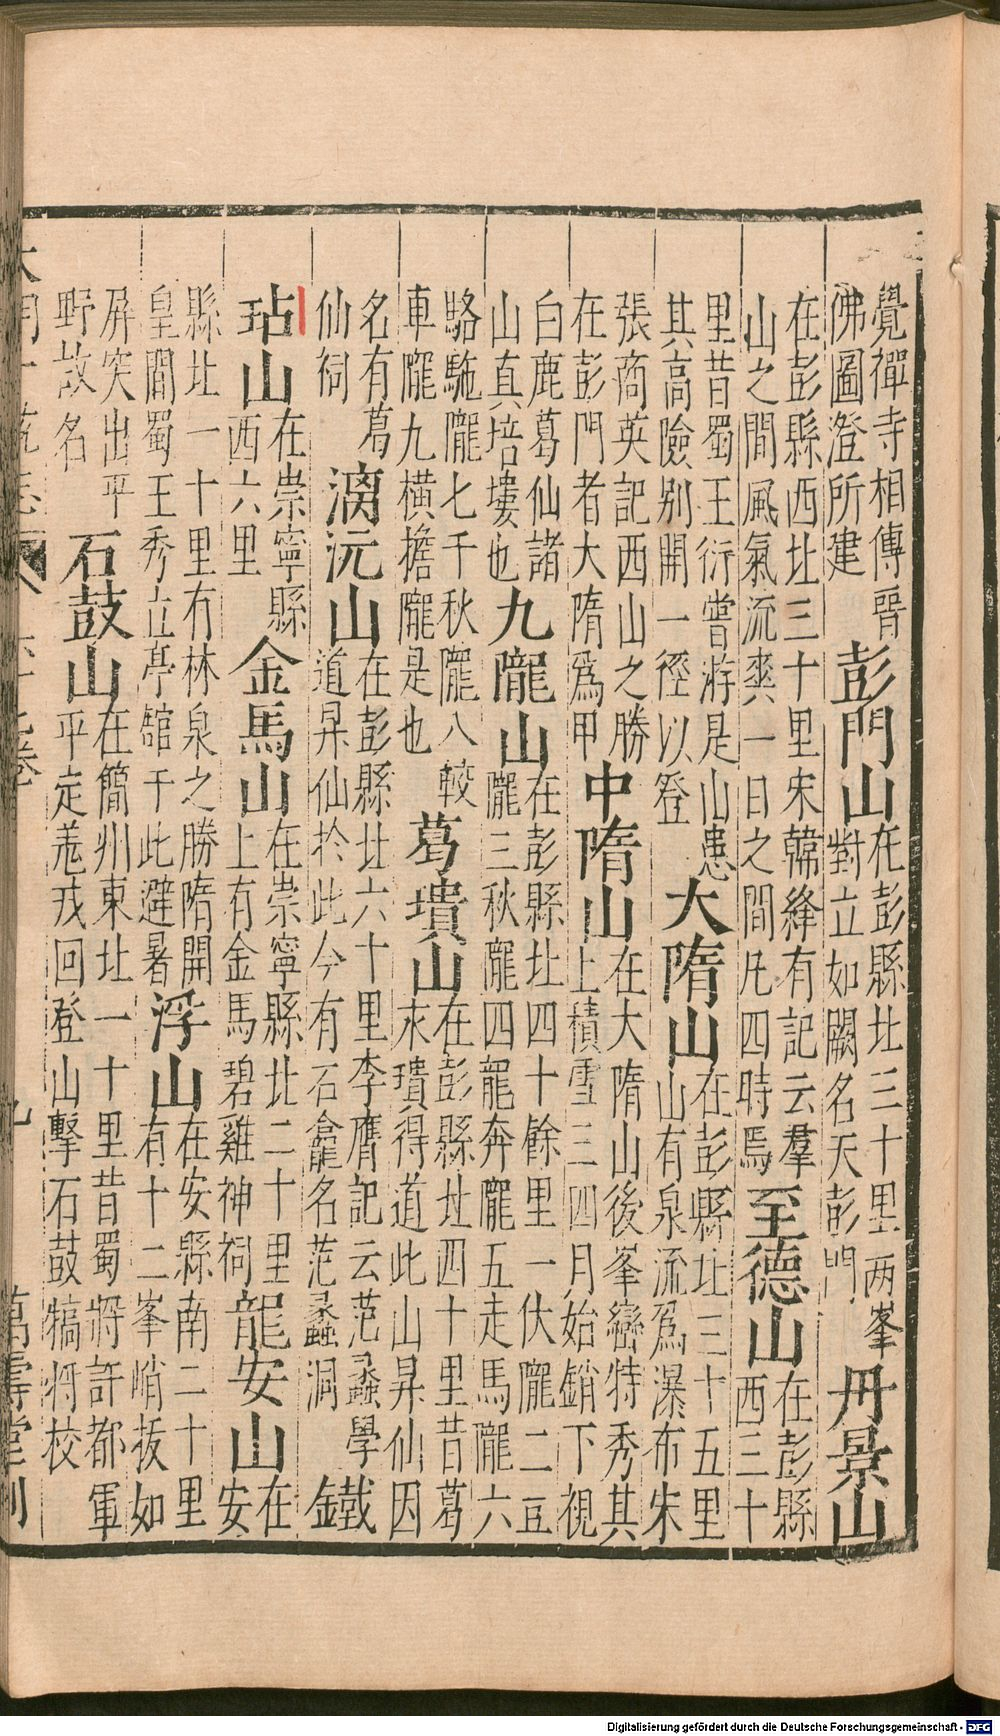 覺禪寺相傳晉
佛圖澄所建
彭門山
在彭縣北三十里两峯
對立如闕名天彭門
丹景山
在彭縣西北三十里宋韓絳有記云羣
山之間風氣流爽一日之間凡四時焉
至德山
在彭縣
西三十
里昔蜀王衍嘗游是山患
其高險别開一徑以登
大隋山
在彭縣北三十五里
山有泉流爲瀑布宋
張商英記西山之勝
在彭門者大隋爲甲
中隋山
在大隋山後峯巒特秀其
上積雪三四月始銷下視
白鹿葛仙諸
山真培塿也
九隴山
在彭縣北四十餘里一伏隴二豆
隴三秋隴四龍奔隴五走馬隴六
駱駞隴七千秋隴八較
車隴九橫擔隴是也
葛璝山
在彭縣北四十里昔葛
永璝得道此山昇仙因
名有葛
仙祠
漓沅山
在彭縣北六十里李膺記云范蠡學
道昇仙於此今有石龕名范蠡洞
鐵
砧山
在崇寧縣
西六里
金馬山
在崇寧縣北二十里
上有金馬碧雞神祠
龍安山
在
安
縣北一十里有林泉之勝隋開
皇間蜀王秀立亭館于此避暑
浮山
在安縣南二十里
有十二峯峭拔如
屏突出平
野故名
石鼓山
在簡州東北一十里昔蜀將許都軍
平定羗戎回登山擊石鼓犒將校
萬壽堂刊
Digitalisierung gefördert durch die Deutsche Forschungsgemeinschaft - DFG